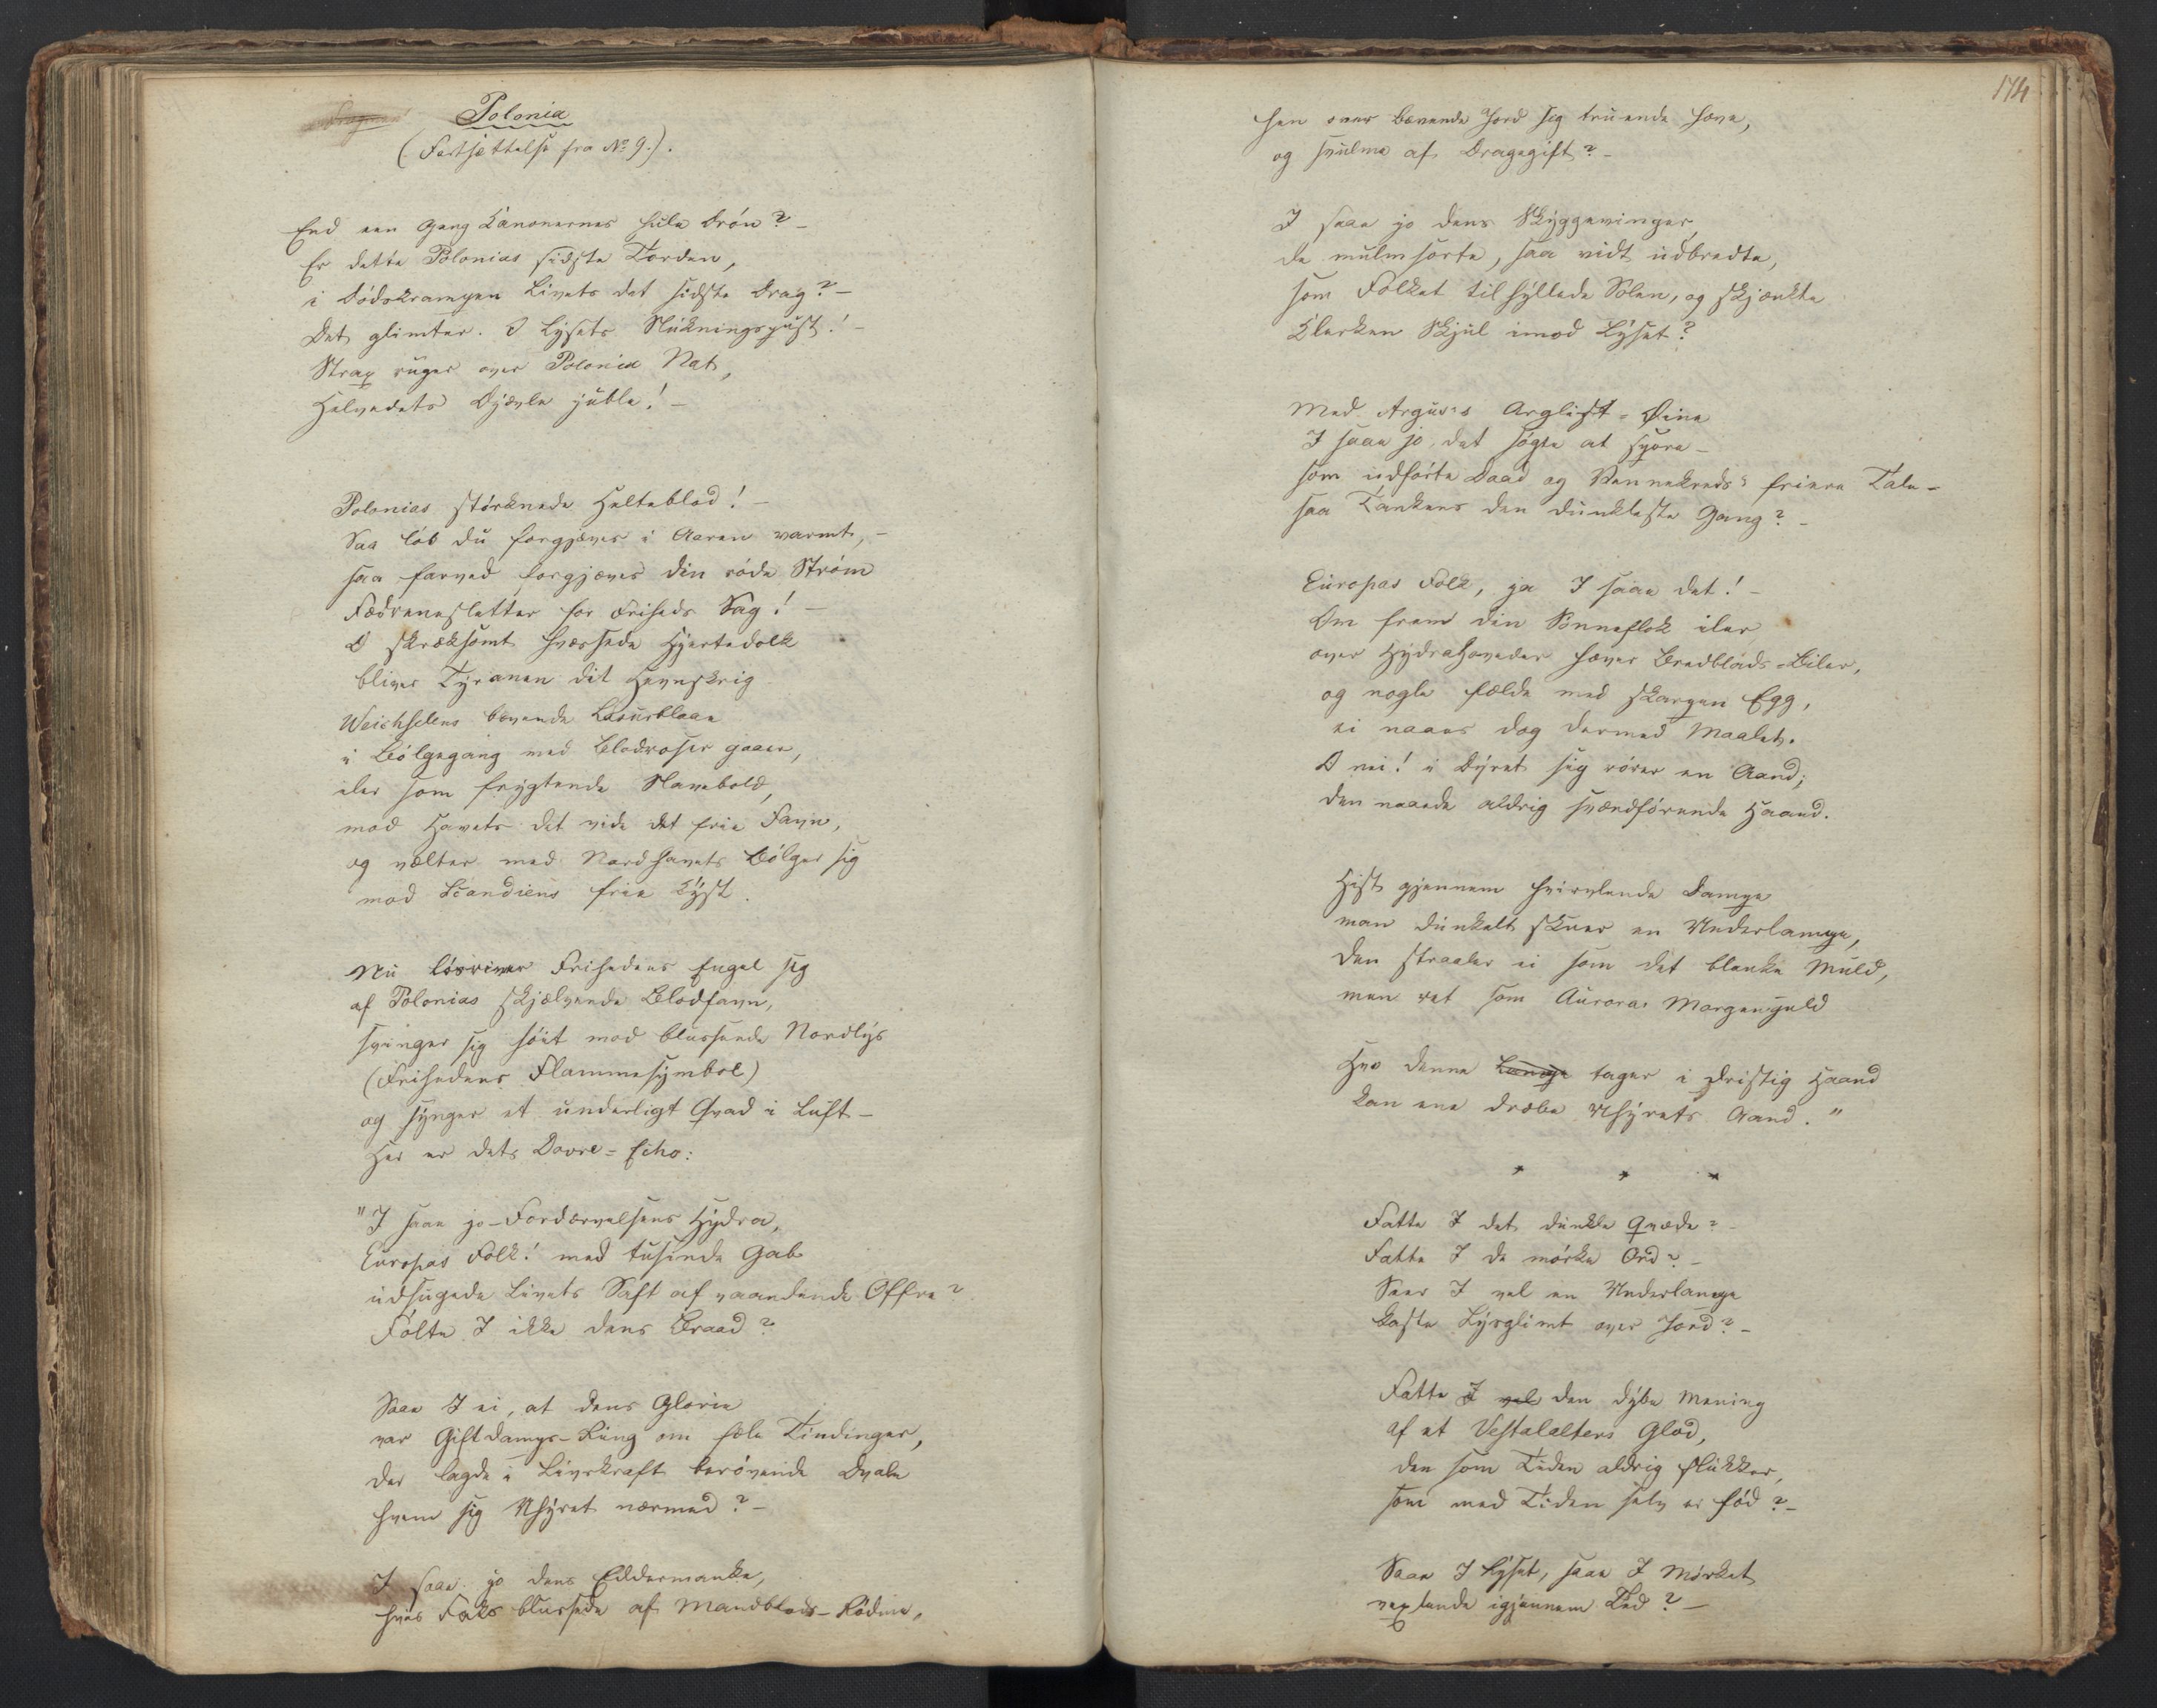 Polonia
(Fortsættelse fra No 9.).
End een Gang Kanonernes hule Drön? –
Er dette Polonias sidste Torden,
i Dödskrampen Livets det sidste Drag? –
Det glimter. O Lysets Slukningspust! –
Strax ruger over Polonia Nat,
Helvedets Djævle juble! –
Polonias störknede Helteblod! –
Saa löb du forgjæves i Aaren varmt, –
saa farved forgjæves din röde Ström
Fædrenesletter for Friheds Sag! –
O skræksomt hvæssede Hjertedolk
bliver Tyranen dit Hevnskrig
Weichselens bævende Lasurblaae
i Bölgegang med Blodroser gaaer,
iler som frygtende Slavebold,
mod Havets det vide det frie Favn,
og vælter med Nordhavets Bölger sig
mod Scandiens frie Kyst.
Nu lösriver Frihedens Engel sig
af Polonias skjælvende Blodfavn,
svinger sig höit mod blussende Nordlys
(Frihedens Flammesymbol)
og synger et underligt Qvad i Luft –
Her er dets Dovre-Echo:
"I saae jo – Fordærvelsens Hydra,
Europas Folk! med tusinde Gab
udsugede Livets Saft af vaandende Offre?
Fölte I ikke dens Braad?
Saae I ei, at dens Glorie
var Giftdamps-Ring om fæle Tindinger,
der lagde i Livskraft berövende Dvale
hvem sig Uhyret nærmed? –
I saae jo dens Eddermanke,
hvis Faks blussede af Mandblods-Rödme,
174
hen over bævende Jord sig truende hæve,
og svulme af Dragegift? –
I saae jo dens Skyggevinger,
de mulmsorte, saa vidt udbredte,
som Folket tilhyllede Solen, og skjænkte
Klerken Skjul imod Lyset?
Med Argus's Arglist-Öine
I saae jo, det sögte at spore –
som udförte Daad og Vennekreds's friere Tale –
saa Tankens den dunkleste Gang? –
Europas Folk, ja I saae det! –
Om frem din Sönneflok iler
over Hydrahoveder hæver Bredblads-Biler,
og nogle fælde med skarpen Egg,
ei naaes dog dermed Maalet.
O nei! i Dyret sig rörer en Aand;
den naaede aldrig sværdförende Haand.
Hist gjennem hvirvlende Dampe
man dunkelt skuer en Underlampe,
den straaler ei som det blanke Muld,
men ret som Auroras Morgenguld
Hvo denne Lampe tager i dristig Haand
kan ene dræbe Uhyrets Aand."
* * *
Fatte I det dunkle Qvæde? –
Fatte I de mörke Ord? –
Seer I vel en Underlampe
kaste Lysglimt over Jord? –
Fatte I vel den dybe Mening
af et Vestalalters Glöd,
den som Tiden aldrig slukker,
som med Tiden selv er föd? –
Saae I Lyset, saae I Mörket
vexlende igjennem Tid? –